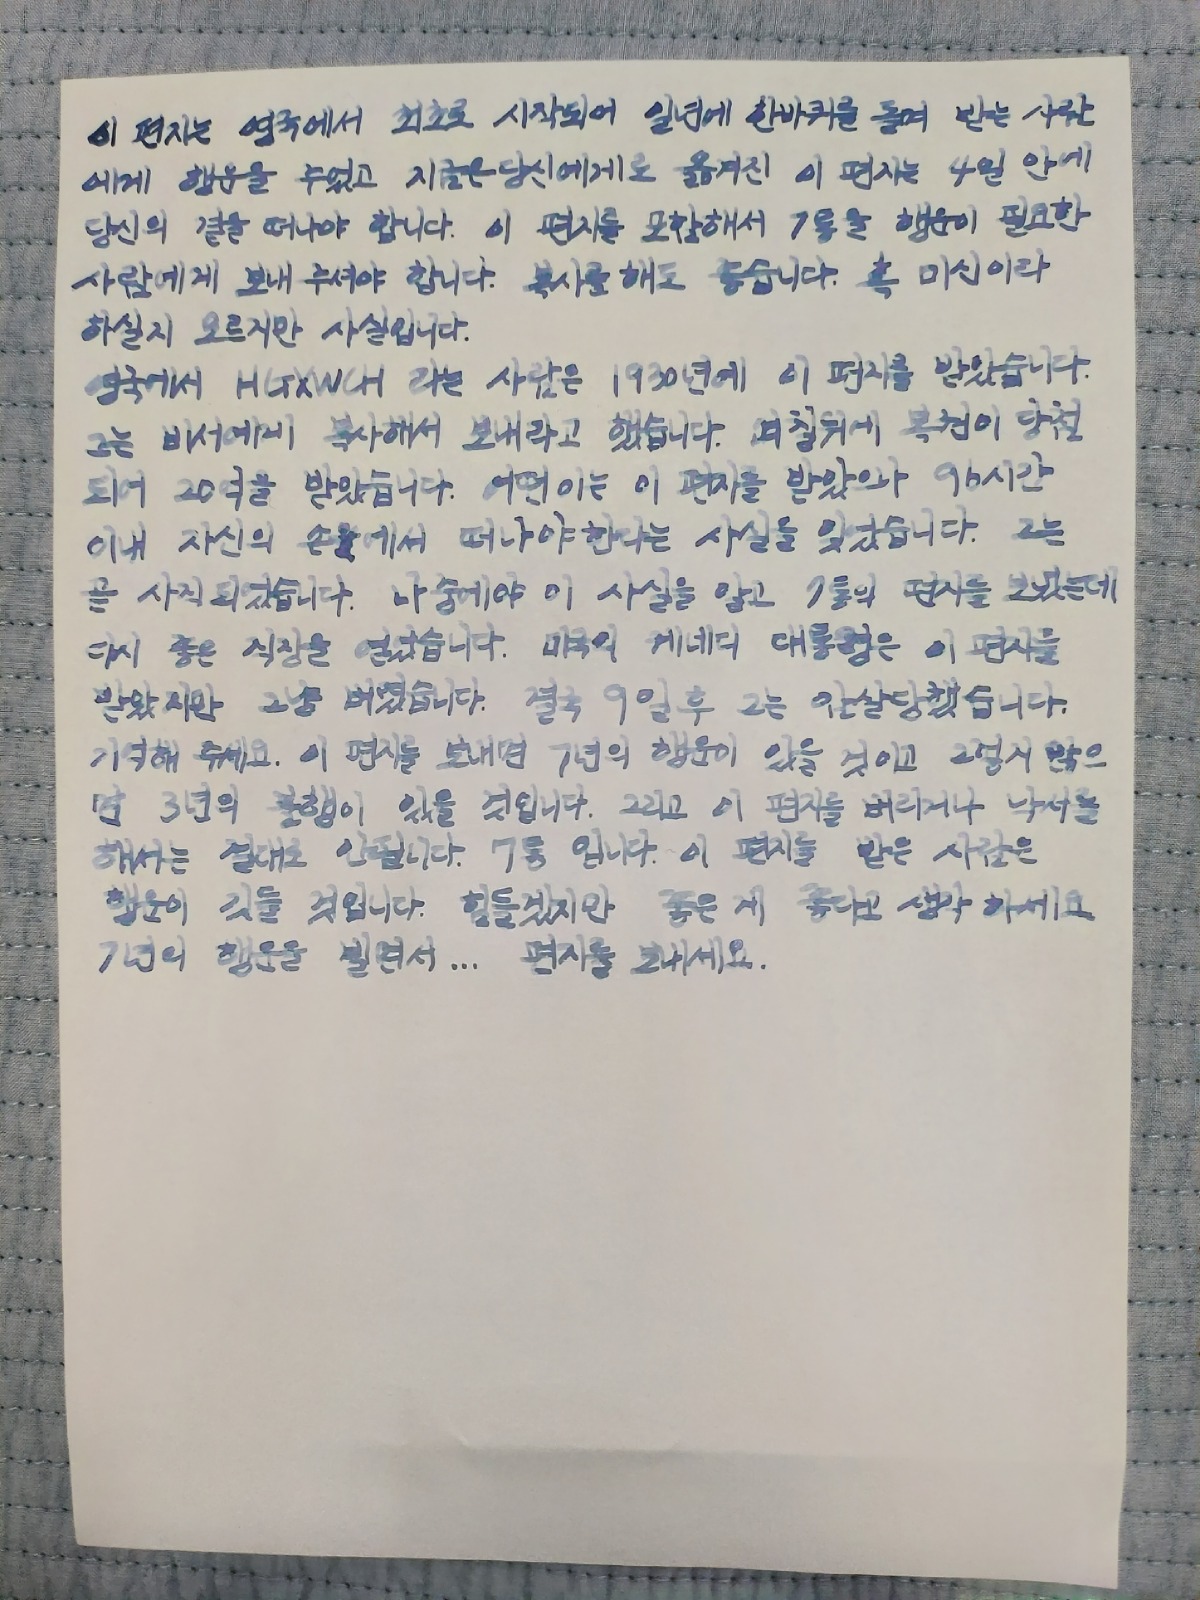 이 편지는 영국에서 최초로 시작되어 일년에 한바퀴를 돌며 받는 사람
에게 행운을 주었고 지금은 당신에게로 옮겨진 이 편지는 4일 안에
당신의 곁을 떠나야 합니다. 이 편지를 포함해서 7통을 행운이 필요한
사람에게 보내 주셔야 합니다. 복사를 해도 좋습니다. 혹 미신이라
하실지 모르지만 사실입니다.
영국에서 HGXWCH 라는 사람은 1930년에 이 편지를 받았습니다.
그는 비서에게 복사해서 보내라고 했습니다. 며칠뒤에 복권이 당첨
되어 20억을 받았습니다. 어떤이는 이 편지를 받았으나 96시간
이내 자신의 손에서 떠나야 한다는 사실을 잊었습니다. 그는
곧 사직되었습니다. 나중에야 이 사실을 알고 7통의 편지를 보냈는데
다시 좋은 직장을 얻었습니다. 미국의 케네디 대통령은 이 편지를
받았지만 그냥 버렸습니다. 결국 9일 후 그는 암살당했습니다.
기억해 주세요. 이 편지를 보내면 7년의 행운이 있을 것이고 그렇지 않으
면 3년의 불행이 있을 것입니다. 그리고 이 편지를 버리거나 낙서를
해서는 절대로 안됩니다. 7통 입니다. 이 편지를 받은 사람은
행운이 깃들 것입니다. 힘들겠지만 좋은 게 좋다고 생각 하세요
7년의 행운을 빌면서... 편지를 보내세요.